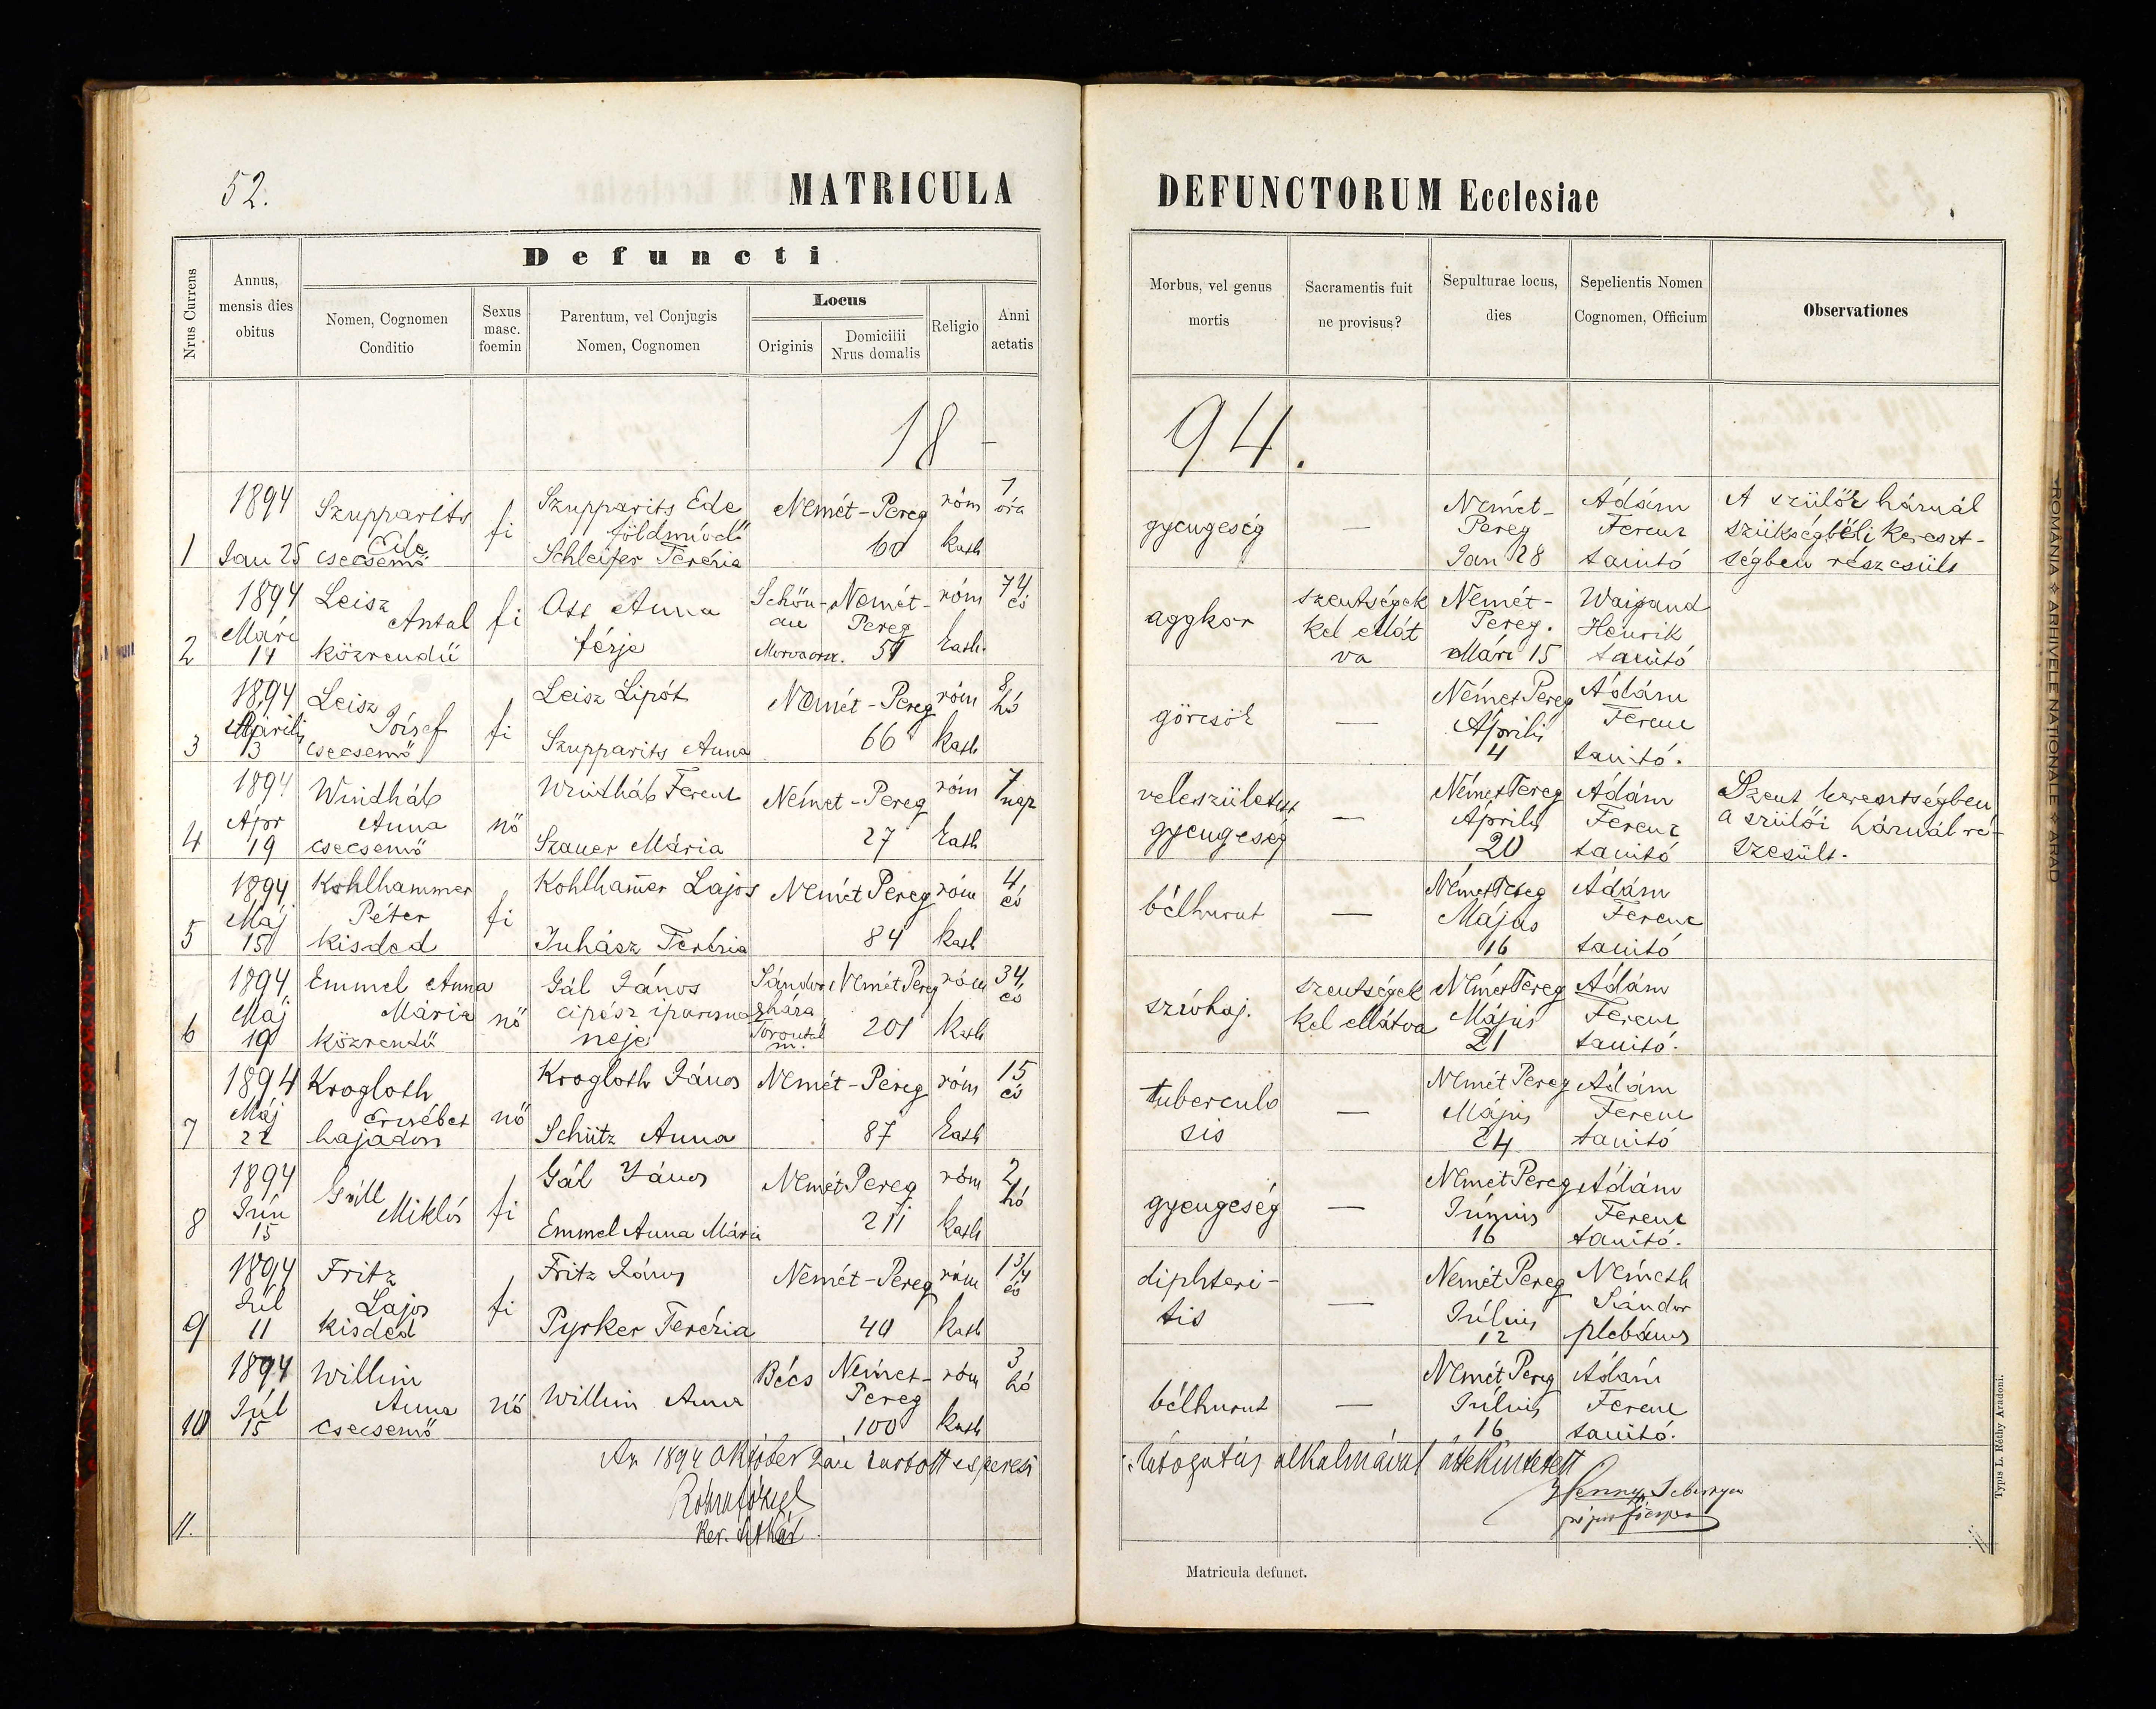 52.
MATRICULA DEFUNCTORUM Ecclesiae
Defuncti
Nrus Currens
Annus, mensis dies obitus
Nomen, Cognomen Conditio
Sexus masc. foemin
Parentum, vel Conjugis Nomen, Cognomen
Locus
Originis
Domicilii Nrus domalis
Religio
Anni aetatis
Morbus, vel genus mortis
Sacramentis fuit ne provisus?
Sepulturae locus, dies
Sepelientis Nomen Cognomen, Officium
Observationes
18 - 94.
1 1894 Jan 25 Szupparits Ede csecsemő fi Szupparits Ede földműv. Schleifer Terézia Német-Pereg 60 róm kath 1 óra gyengeség — Német-Pereg Jan 28 Ádám Ferenz tanitó A szülői háznál szükségbéli kereszt-ségben részesült
2 1894 Márc 14 Leisz Antal közrendü fi Ott Anna férje Schön-au Morvaorsz. Német-Pereg 51 róm kath. 74 év aggkor szentségek kel ellát va Német-Pereg. Márc 15 Waigand Henrik tanitó
3 1894 Április 3 Leisz József csecsemő fi Leisz Lipót Szupparits Anna Német-Pereg 66 róm kath 8 hó görcsök — Német Pereg Április 4 Ádám Ferenc tanitó.
4 1894 Ápr 19 Windháb Anna csecsemő nő Windháb Ferenc Szauer Mária Német-Pereg 27 róm kath 7 nap veleszületett gyengeség — Német Pereg Április 20 Ádám Ferenz tanitó Szent keresztségben a szülői háznál ré-szesült.
5 1894 Máj 15 Kohlhammer Péter kisded fi Kohlham̄er Lajos Juhász Terézia Német Pereg 84 róm kath 4 év bélhurut — Német Pereg Május 16 Ádám Ferenc tanitó
6 1894 Máj 19 Emmel Anna Mária közrendü nő Gál János cipész iparosnak neje Sándor-háza Torontál m. Német Pereg 201 róm kath 34 év szivbaj. szentségek kel ellátva Német Pereg Május 21 Ádám Ferenc tanitó.
7 1894 Máj 22 Krogloth Erzsébet hajadon nő Krogloth János Schütz Anna Német-Pereg 87 róm kath 15 év tuberculo sis — Német Pereg Május 24 Ádám Ferenc tanitó
8 1894 Jún 15 Miklós fi Gál János Emmel Anna Mária Német Pereg 211 róm kath 2 hó gyengeség — Német Pereg Június 16 Ádám Ferenc tanitó.
9 1894 Júl 11 Fritz Lajos kisded fi Fritz János Pyrker Terézia Német-Pereg 40 róm kath 1 3/4 év diphteri-tis — Német Pereg Július 12 Németh Sándor plebános
10 1894 Júl 15 Willim Anna csecsemő nő Willim Anna Bécs Német-Pereg 100 róm kath 3 hó bélhurut — Német Pereg Július 16 Ádám Ferenc tanitó.
Az 1894 Október 2án tartott esperesi látogatás alkalmával áttekintetett
Ker.
11.
Matricula defunct.
Typis L. Réthy Aradoni.
ROMÂNIA ❖ ARHIVELE NAȚIONALE ❖ ARAD